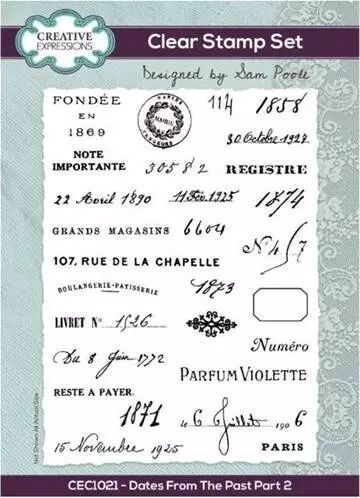 CREATIVE
EXPRESSIONS
Clear Stamp Set
Designed by Sam Poole
FONDÉE
EN
1869
MAIRIE
114
1858
30 Octobre 1927
NOTE
IMPORTANTE
30582
REGISTRE
22 Avril 1890
11 Fév. 1925
1874
GRANDS MAGASINS
6604
Nº 4 / 7
107, RUE DE LA CHAPELLE
BOULANGERIE-PATISSERIE
1873
LIVRET Nº 1526
Numéro
Du 8 Juin 1772
PARFUM VIOLETTE
RESTE A PAYER
1871
le 6 Juillet 1906
15 Novembre 1925
PARIS
Not Shown At Actual Size
CEC1021 - Dates From The Past Part 2